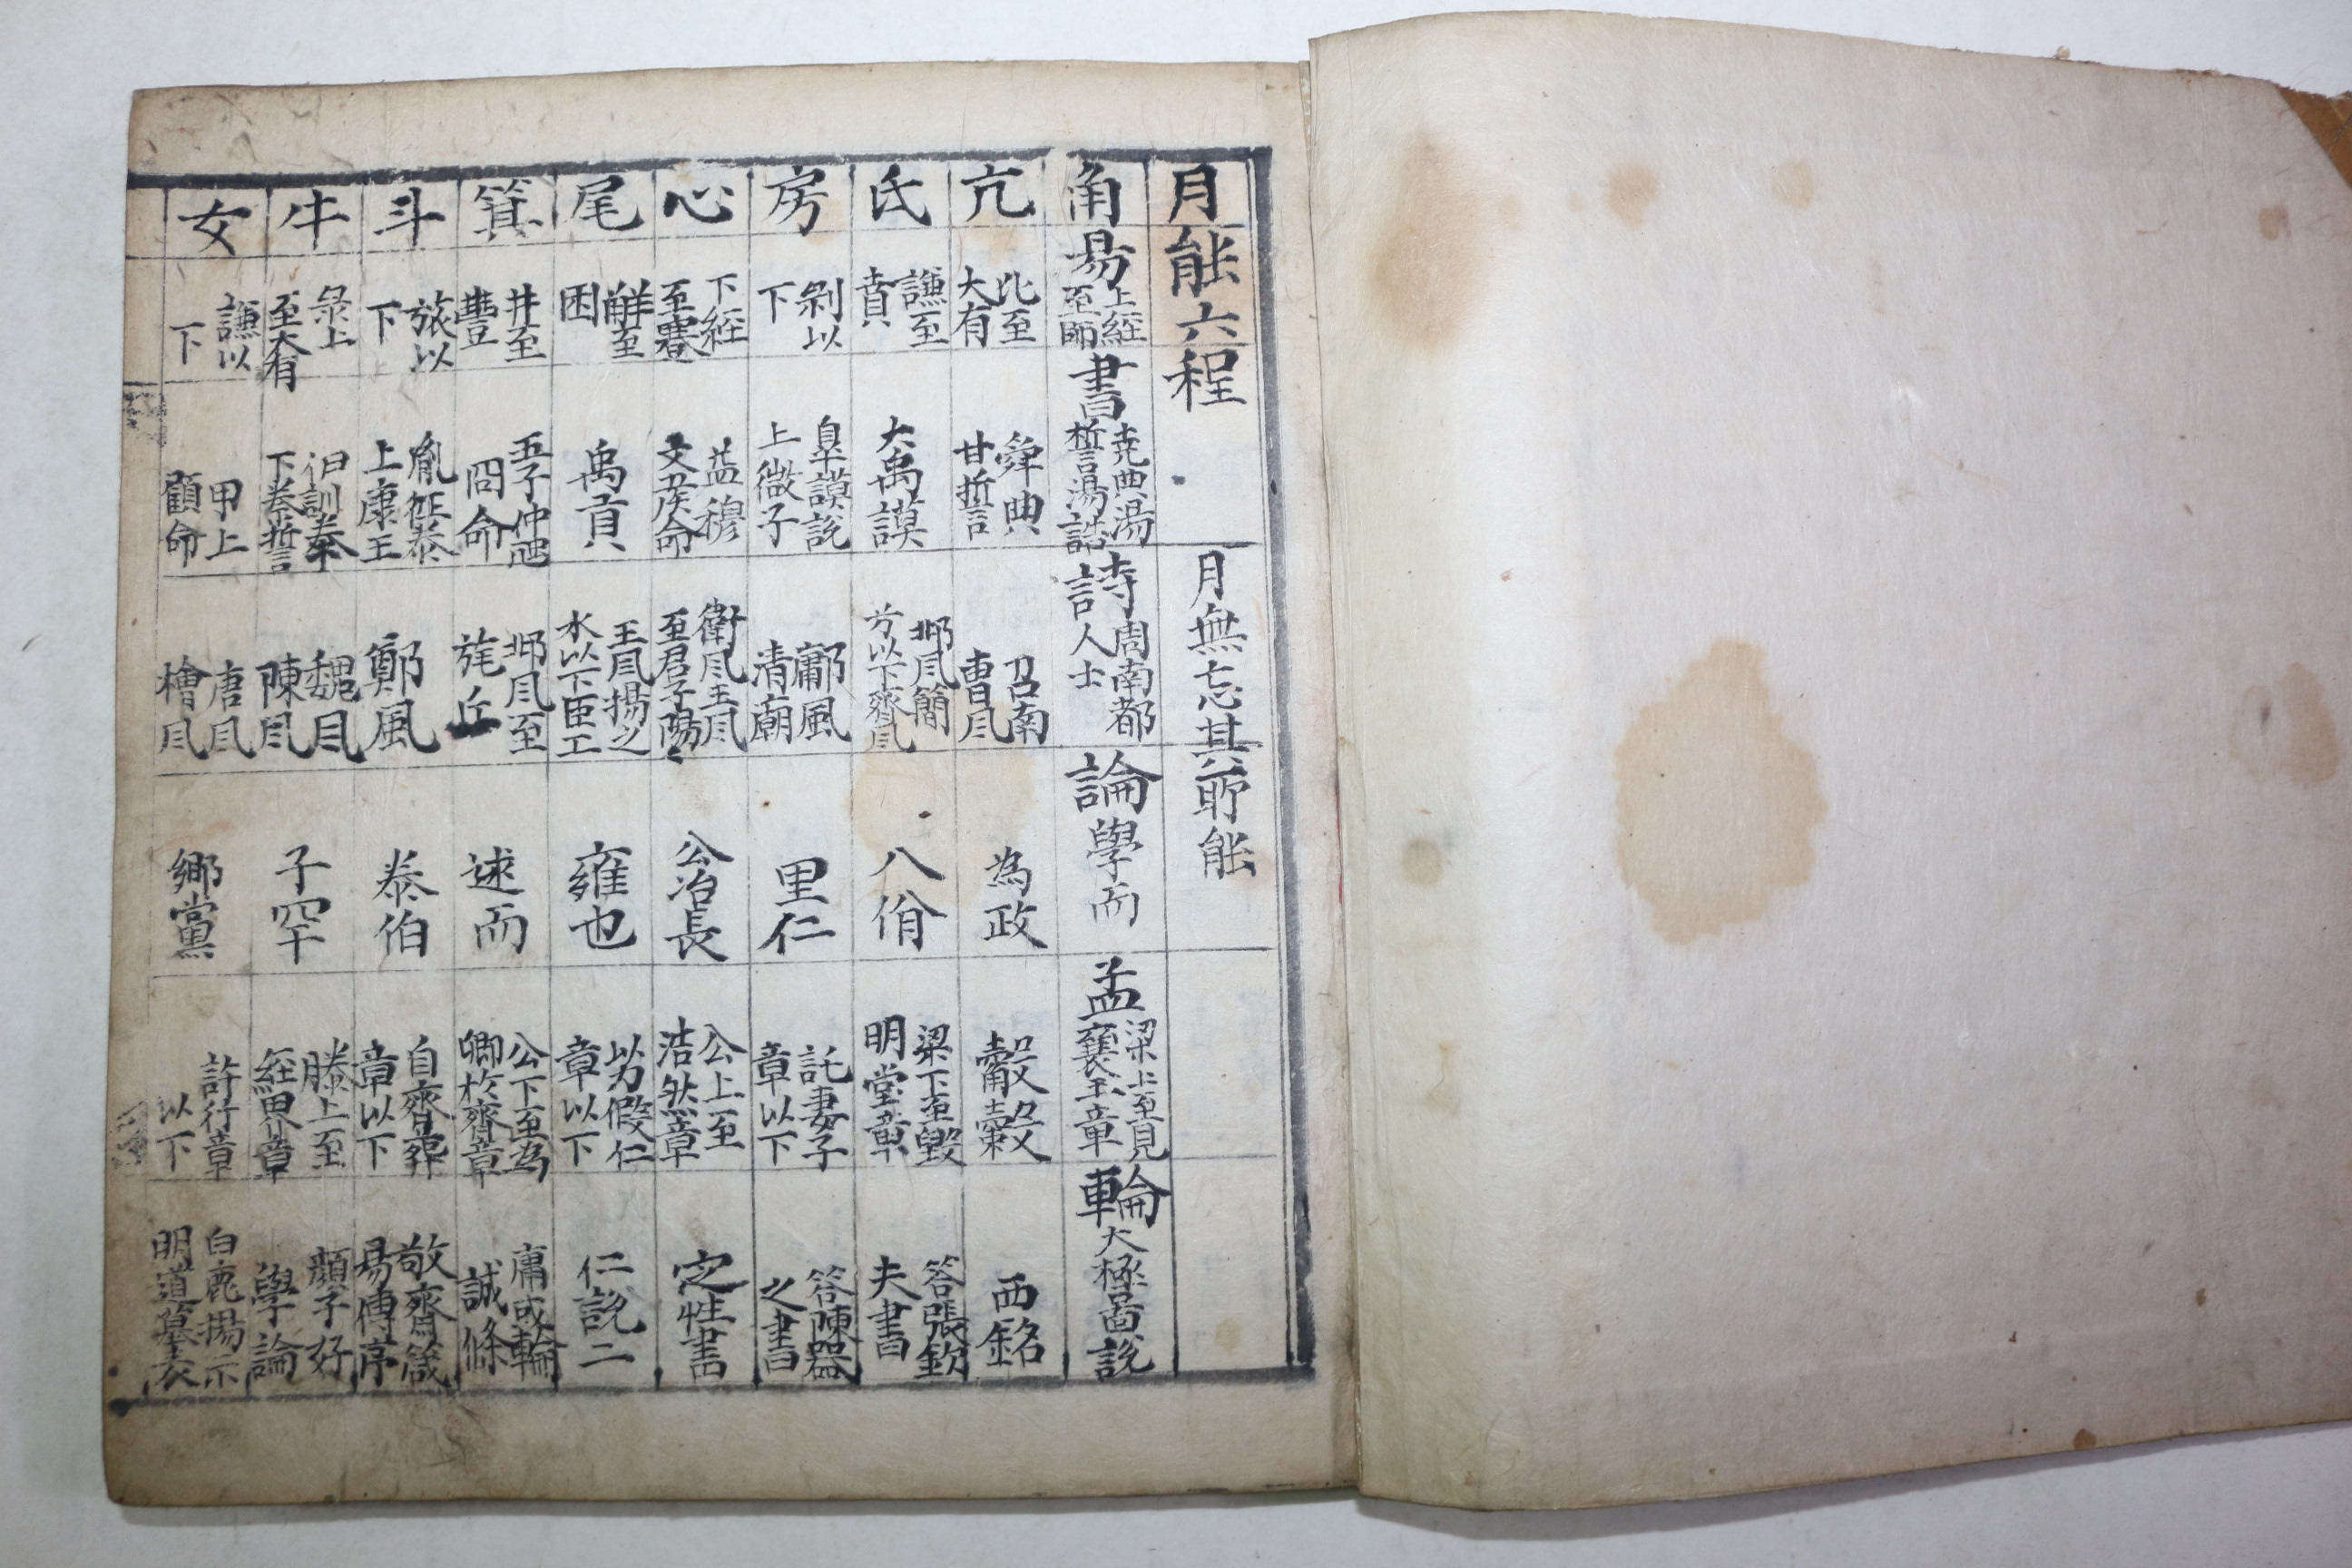 月能六程 月無忘其所能
角 易 上經至師 書 堯典湯誓湯誥 詩 周南都人士 論 學而 孟 梁上至見襄王章 輪 大極啚說
亢 比至大有 舜典甘誓 召南曹風 為政 西銘
氐 謙至賁 大禹謨 邶風簡兮以下齊風 八佾 梁下至毀明堂章 答張欽夫書
房 剝以下 皐謨說上微子 鄘風清廟 里仁 託妻子章以下 答陳器之書
心 下經至蹇 益穆文侯命 衛風王風至君子陽々 公冶長 公上至浩然章 定性書
尾 觧至困 禹貢 王風揚之水以下臣工 雍也 以力假仁章以下 仁說二
箕 井至豐 五子仲虺冏命 邶風至旄丘 述而 公下至為卿於齊章 庸或輪誠條
斗 旅以下 胤征泰上康王 鄭風 泰伯 自齊葬章以下 敬齋箴易傳序
牛 彖上至大有 伊訓秦下泰誓 魏風陳風 子罕 滕上至經界章 顏子好學論
女 謙以下 甲上顧命 唐風檜風 鄕黨 許行章以下 白鹿揭示明道墓表